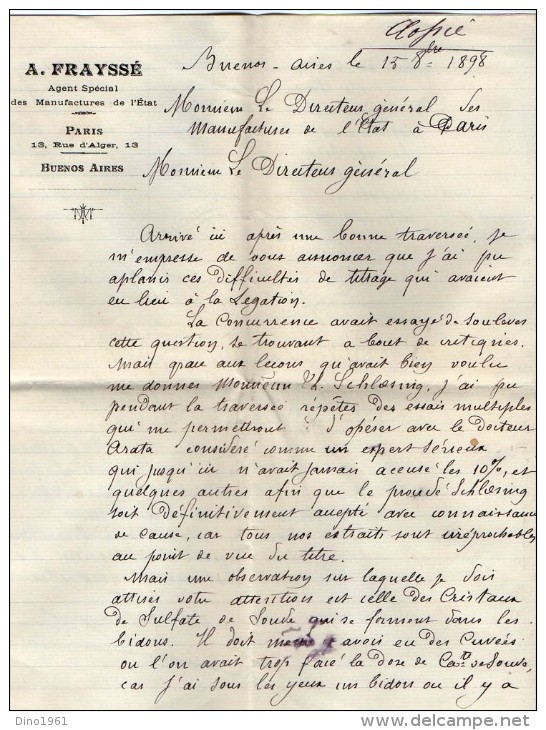 Classé
A. FRAYSSÉ
Agent Spécial
des Manufactures de l'État
PARIS
13, Rue d'Alger, 13
BUENOS AIRES
Buenos-aires le 15 8bre 1898
Monsieur Le Directeur général des
Manufactures de l'Etat à Paris
Monsieur Le Directeur général
Arrivé ici après une bonne traversée, je
m'empresse de vous annoncer que j'ai pu
aplanir ces difficultés de titrage qui avaient
eu lieu à la Légation.
La Concurrence avait essayé de soulever
cette question, se trouvant à bout de critiques.
Mais grace aux leçons qu'avait bien voulu
me donner Monsieur Th. Schlœsing, j'ai pu
pendant la traversée répéter des essais multiples
qui me permettront d'opérer avec le Docteur
Arata considéré comme un expert sérieux
qui jusqu'ici n'avait jamais accusé les 10%, et
quelques autres afin que le procédé Schlœsing
soit définitivement accepté avec connaissance
de cause, car tous nos extraits sont irréprochables
au point de vue du titre.
Mais une observation sur laquelle je dois
attirer votre attention est celle des Cristaux
de Sulfate de Soude qui se forment dans les
bidons. Il doit y avoir eu des Cuvées
ou l'on avait trop forcé la dose de Cate de Soude,
car j'ai sous les yeux un bidon ou il y a
Dino1961